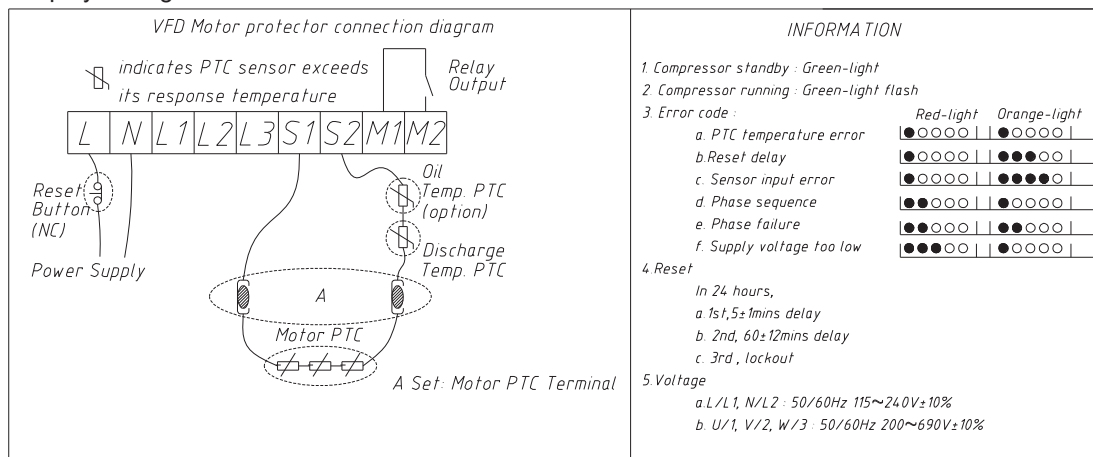 VFD Motor protector connection diagram
indicates PTC sensor exceeds
its response temperature
Relay
Output
L N L1 L2 L3 S1 S2 M1 M2
Reset
Button
(NC)
Oil
Temp. PTC
(option)
Discharge
Temp. PTC
Power Supply
A
Motor PTC
A Set: Motor PTC Terminal
INFORMATION
1. Compressor standby : Green-light
2. Compressor running : Green-light flash
3. Error code :
Red-light Orange-light
a. PTC temperature error
b.Reset delay
c. Sensor input error
d. Phase sequence
e. Phase failure
f. Supply voltage too low
4.Reset
In 24 hours,
a. 1st,5±1mins delay
b. 2nd, 60±12mins delay
c. 3rd , lockout
5.Voltage
a.L/L1, N/L2 : 50/60Hz 115~240V±10%
b. U/1, V/2, W/3 : 50/60Hz 200~690V±10%